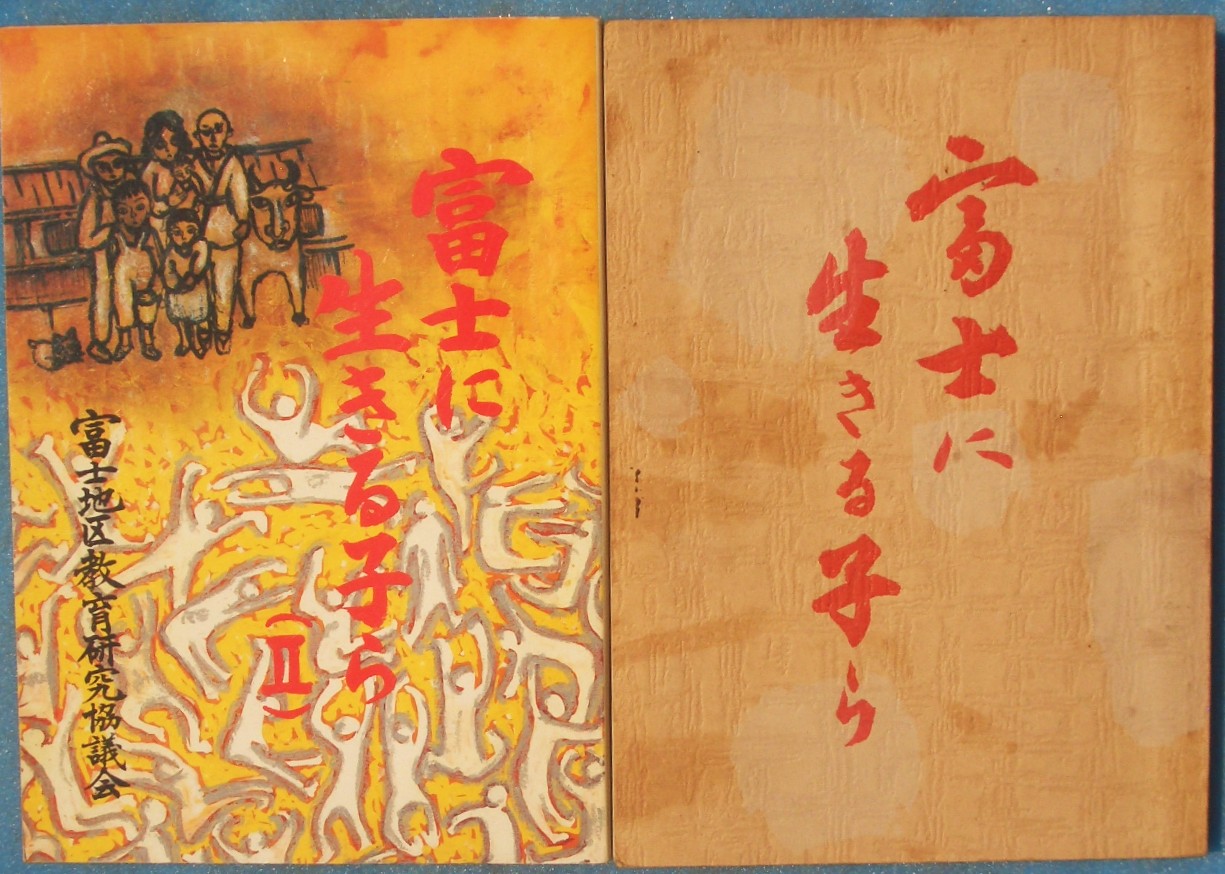 富士に
生きる子ら
(Ⅱ)
富士地区教育研究協議会
富士に
生きる子ら